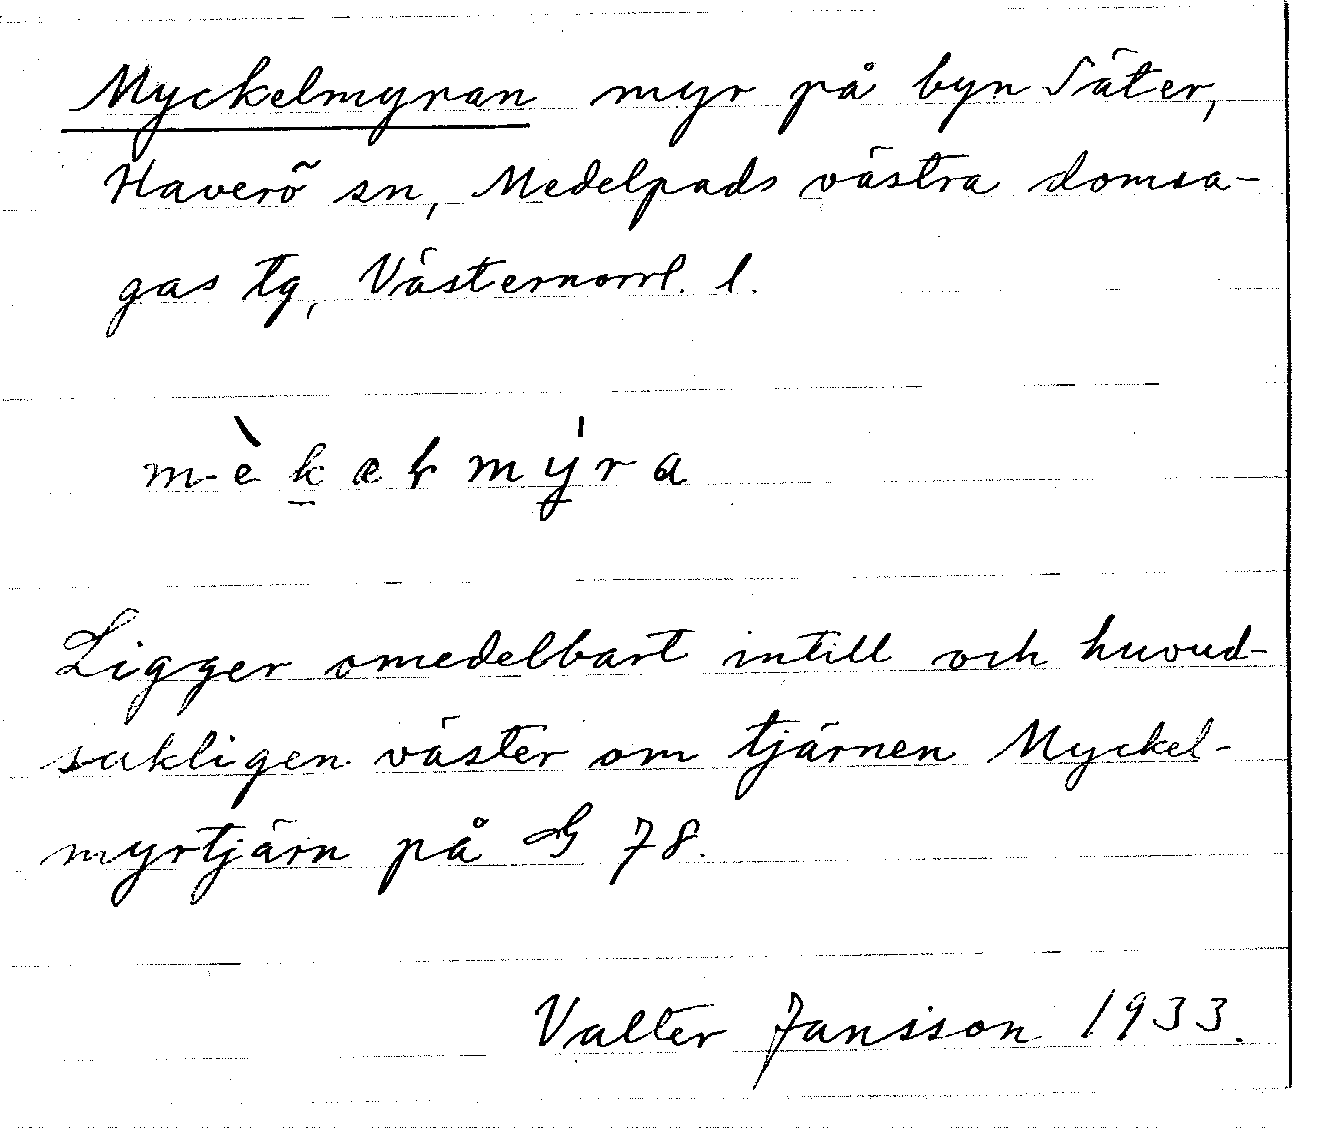 Myckelmyran myr på byn Säter,
Haverö sn, Medelpads västra domsa-
gas tg, Västernorrl. l.
Ligger omedelbart intill och huvud-
sakligen väster om tjärnen Myckel-
myrtjärn på G 78.
Valter Jansson 1933.